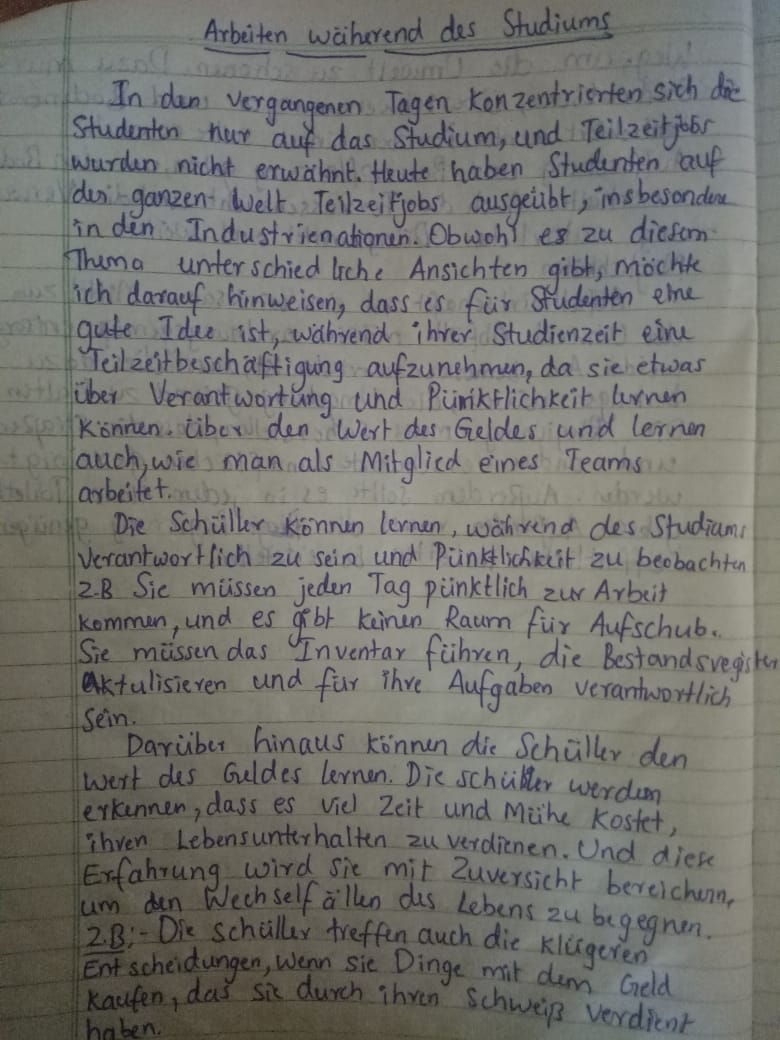 Arbeiten während des Studiums
In den vergangenen Tagen konzentrierten sich die
Studenten nur auf das Studium, und Teilzeitjobs
wurden nicht erwähnt. Heute haben Studenten auf
der ganzen Welt Teilzeitjobs ausgeübt, insbesondere
in den Industrienationen. Obwohl es zu diesem
Thema unterschiedliche Ansichten gibt, möchte
ich darauf hinweisen, dass es für Studenten eine
gute Idee ist, während ihrer Studienzeit eine
Teilzeitbeschäftigung aufzunehmen, da sie etwas
über Verantwortung und Pünktlichkeit lernen
können. über den Wert des Geldes und lernen
auch, wie man als Mitglied eines Teams
arbeitet.
Die Schüller können lernen, während des Studiums
verantwortlich zu sein und Pünktlichkeit zu beobachten
z.B Sie müssen jeden Tag pünktlich zur Arbeit
kommen, und es gibt keinen Raum für Aufschub.
Sie müssen das Inventar führen, die Bestandsregister
aktulisieren und für ihre Aufgaben verantwortlich
sein.
Darüber hinaus können die Schüller den
Wert des Geldes lernen. Die schüller werden
erkennen, dass es viel Zeit und Mühe kostet,
ihren Lebensunterhalten zu verdienen. Und diese
Erfahrung wird sie mit Zuversicht bereichern,
um den Wechselfällen des Lebens zu begegnen.
z.B:- Die schüller treffen auch die klügeren
Entscheidungen, wenn sie Dinge mit dem Geld
kaufen, das sie durch ihren Schweiß verdient
haben.